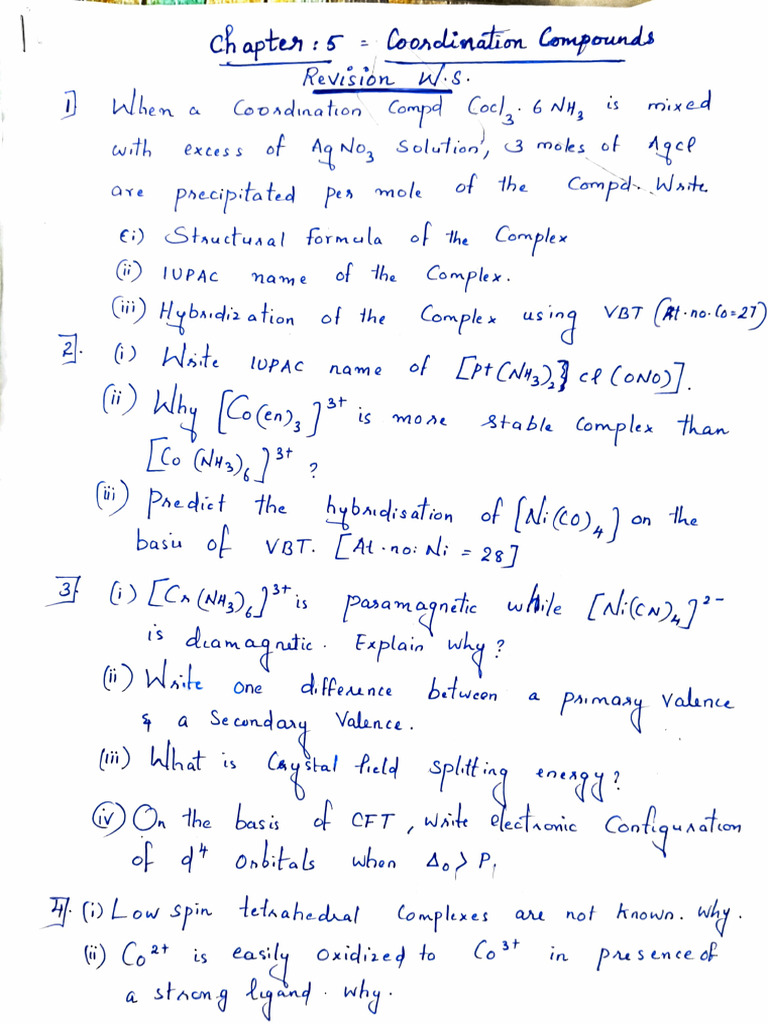 1
Chapter : 5 = Coordination Compounds
Revision W.S.
1) When a Coordination Compd CoCl₃. 6 NH₃ is mixed
with excess of AgNO₃ Solution, 3 moles of AgCl
are precipitated per mole of the Compd. Write
(i) Structural formula of the Complex
(ii) IUPAC name of the Complex.
(iii) Hybridization of the Complex using VBT (At.no. Co=27)
2. (i) Write IUPAC name of [Pt(NH₃)₂} Cl (ONO)].
(ii) Why [Co(en)₃]³⁺ is more stable complex than
[Co (NH₃)₆]³⁺ ?
(iii) Predict the hybridisation of [Ni(CO)₄] on the
basis of VBT. [At.no: Ni = 28]
3 (i) [Cr(NH₃)₆]³⁺ is paramagnetic while [Ni(CN)₄]²⁻
is diamagnetic. Explain why?
(ii) Write one difference between a primary valence
& a Secondary Valence.
(iii) What is Crystal field splitting energy?
(iv) On the basis of CFT, write electronic Configuration
of d⁴ orbitals when Δ₀ > P,
4. (i) Low spin tetrahedral Complexes are not known. why.
(ii) Co²⁺ is easily oxidized to Co³⁺ in presence of
a strong ligand. why.